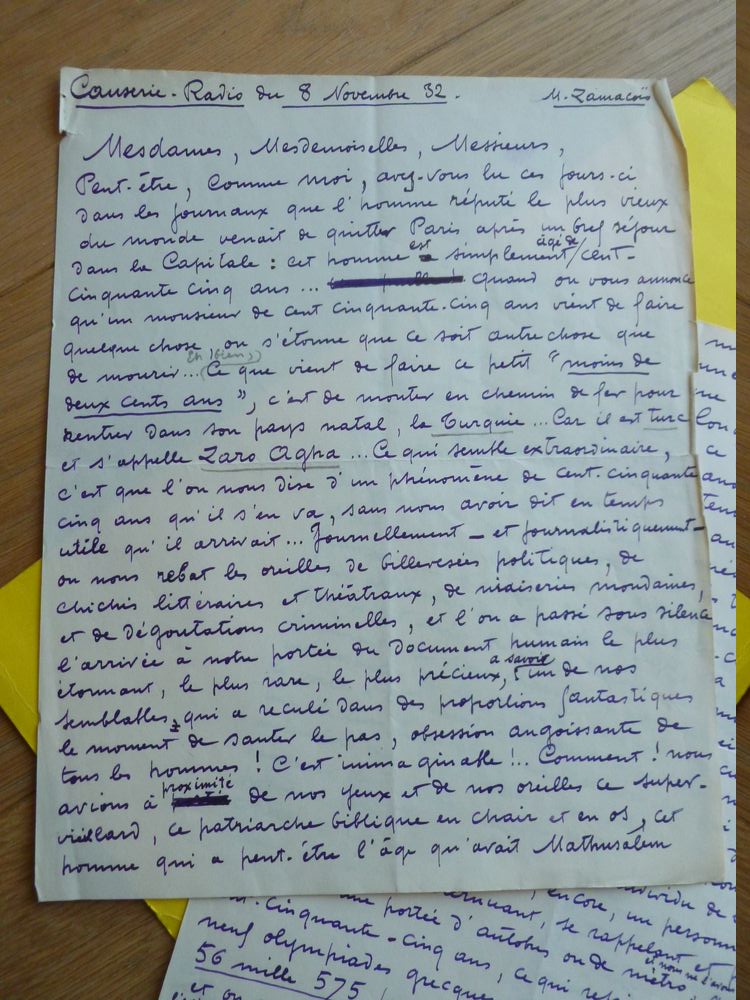 Causerie-Radio du 8 Novembre 32. M. Zamacoïs
Mesdames, Mesdemoiselles, Messieurs,
Peut-être, comme moi, avez-vous lu ces jours-ci
dans les journaux que l'homme réputé le plus vieux
du monde venait de quitter Paris après un bref séjour
dans la Capitale : cet homme est simplement âgé de cent-
cinquante cinq ans... Quand on vous annonce
qu'un monsieur de cent cinquante-cinq ans vient de faire
quelque chose, on s'étonne que ce soit autre chose que
de mourir... Eh bien, Ce que vient de faire ce petit "moins de
deux cents ans", c'est de monter en chemin de fer pour
rentrer dans son pays natal, la Turquie... Car il est turc
et s'appelle Zaro Agha... Ce qui semble extraordinaire,
c'est que l'on nous dise d'un phénomène de cent-cinquante
cinq ans qu'il s'en va, sans nous avoir dit en temps
utile qu'il arrivait... Journellement - et journalistiquement -
on nous rebat les oreilles de billevesées politiques, de
chichis littéraires et théâtraux, de niaiseries mondaines,
et de dégoutations criminelles, et l'on a passé sous silence
l'arrivée à notre portée du document humain le plus
étonnant, le plus rare, le plus précieux, à savoir l'un de nos
semblables, qui a reculé dans des proportions fantastiques
le moment de sauter le pas, obsession angoissante de
tous les hommes ! C'est inimaginable !.. Comment ! nous
avions à proximité de nos yeux et de nos oreilles ce super-
vieillard, ce patriarche biblique en chair et en os, cet
homme qui a peut-être l'âge qu'avait Mathusalem
individu de
encore, un personn
se rappelant et
une portée d'autobus ou de métro
-cinquante-cinq ans, ce qui
neuf olympiades grecques
56 mille 575
et